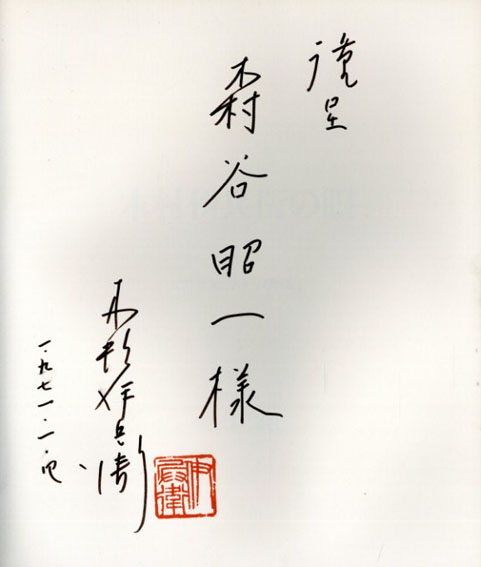 謹呈
森谷昭一様
木村伊兵衛
一九七一・一・
伊兵衛